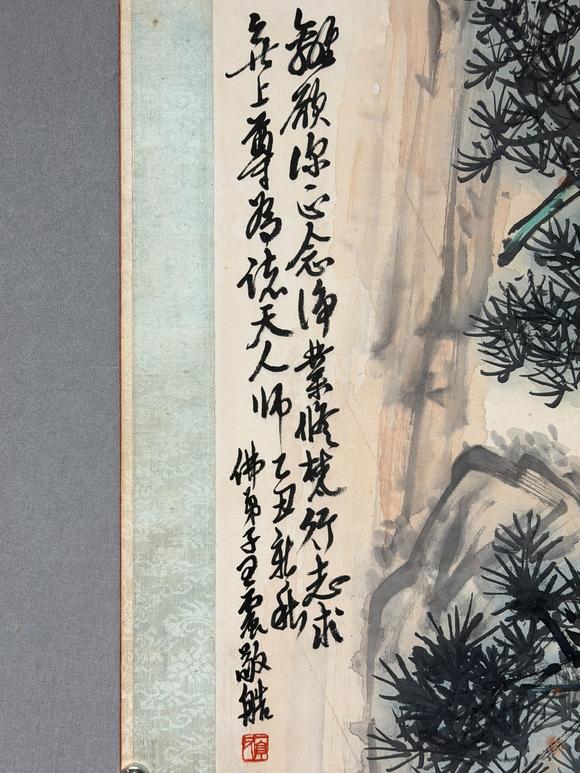 離欲深正念淨業修梵行志求
無上尊為諸天人師 乙丑新秋
佛弟子王震敬艁